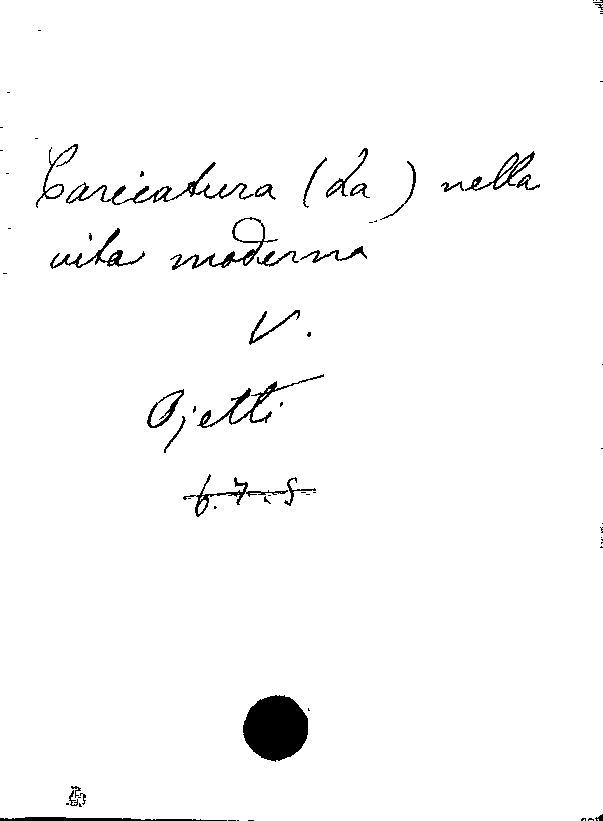 Caricatura (La) nella
vita moderna
V.
Ojetti
6.7.5